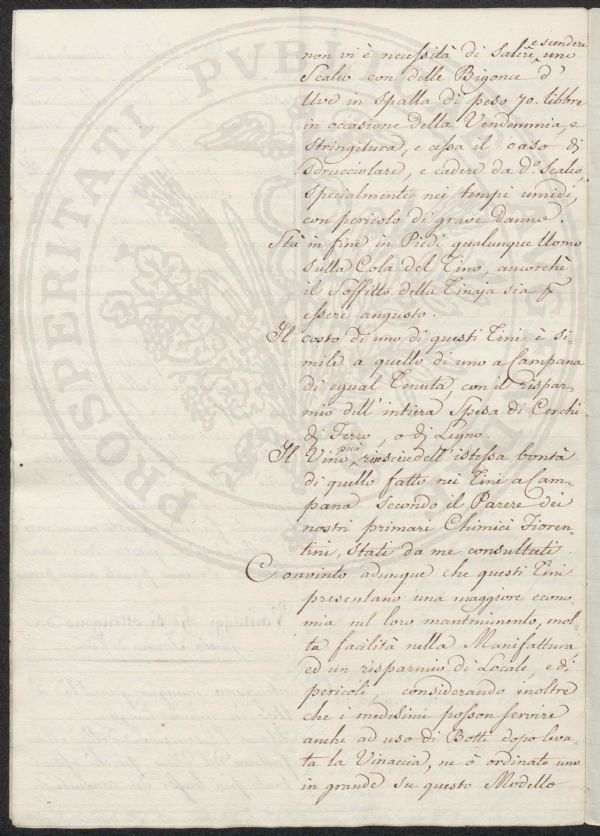 non vi è necessità di salire, e scendere uno
Scaleo con delle Bigonce d'
Uve in spalla di peso 70. libbre
in occasione della Vendemmia, e
stringitura, e cessa il caso di
sdrucciolare, e cadere da d.o Scaleo,
specialmente nei tempi umidi,
con pericolo di grave danno.
Stà in fine in Piedi qualunque Uomo
sulla Cola del Tino, ancorchè
il Soffitto della Tinaja sia p
essere angusto.
Il costo di uno di questi Tini è si-
mile a quello di uno a Campana
di egual Tenuta, con il rispar-
mio dell'intiera Spesa di Cerchi
di Ferro, o di Legno.
Il Vino può riescire dell'istessa bontà
di quello fatto nei Tini a Cam-
pana secondo il Parere dei
nostri primari Chimici Fioren-
tini, stati da me consultati.
Convinto adunque che questi Tini
presentano una maggiore econo-
mia sul loro mantenimento, mol-
ta facilità nella Manifattura,
ed un risparmio di Locale, e di
pericoli, considerando inoltre
che i medesimi posson servire
anche ad uso di Botti dopo leva-
ta la Vinaccia, ne ò ordinato uno
in grande su questo Modello
PROSPERITATI PUB